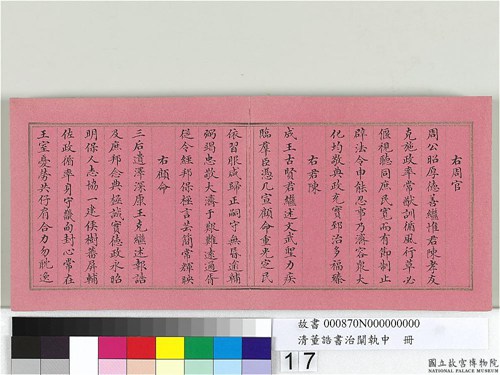 右周官
周公昭厚德善繼惟君陳孝友
克施政率常猷訓循風行草必
偃視聽同庶民寬而有御制止
辟法令中能忍事乃濟容眾大
化均敬典政允實郅治多福臻
右君陳
成王古賢君繼述文武聖力疾
臨羣臣憑几宣顧命重光定民
依習服咸歸正嗣守無昏逾輔
弼竭忠敬大濟于艱難遠邇胥
從令經邦保極言芸簡常輝映
右顧命
三后遺澤深康王克繼述報誥
及庶邦念典極誠實德政永昭
明保人志協一建侯樹蕃屏輔
佐政循率身守藩封心常在
王室憂勞共仔肩合力勿眺逸
故書 000870N000000000
清董誥書治闕執中 冊
17
國立故宮博物院
NATIONAL PALACE MUSEUM